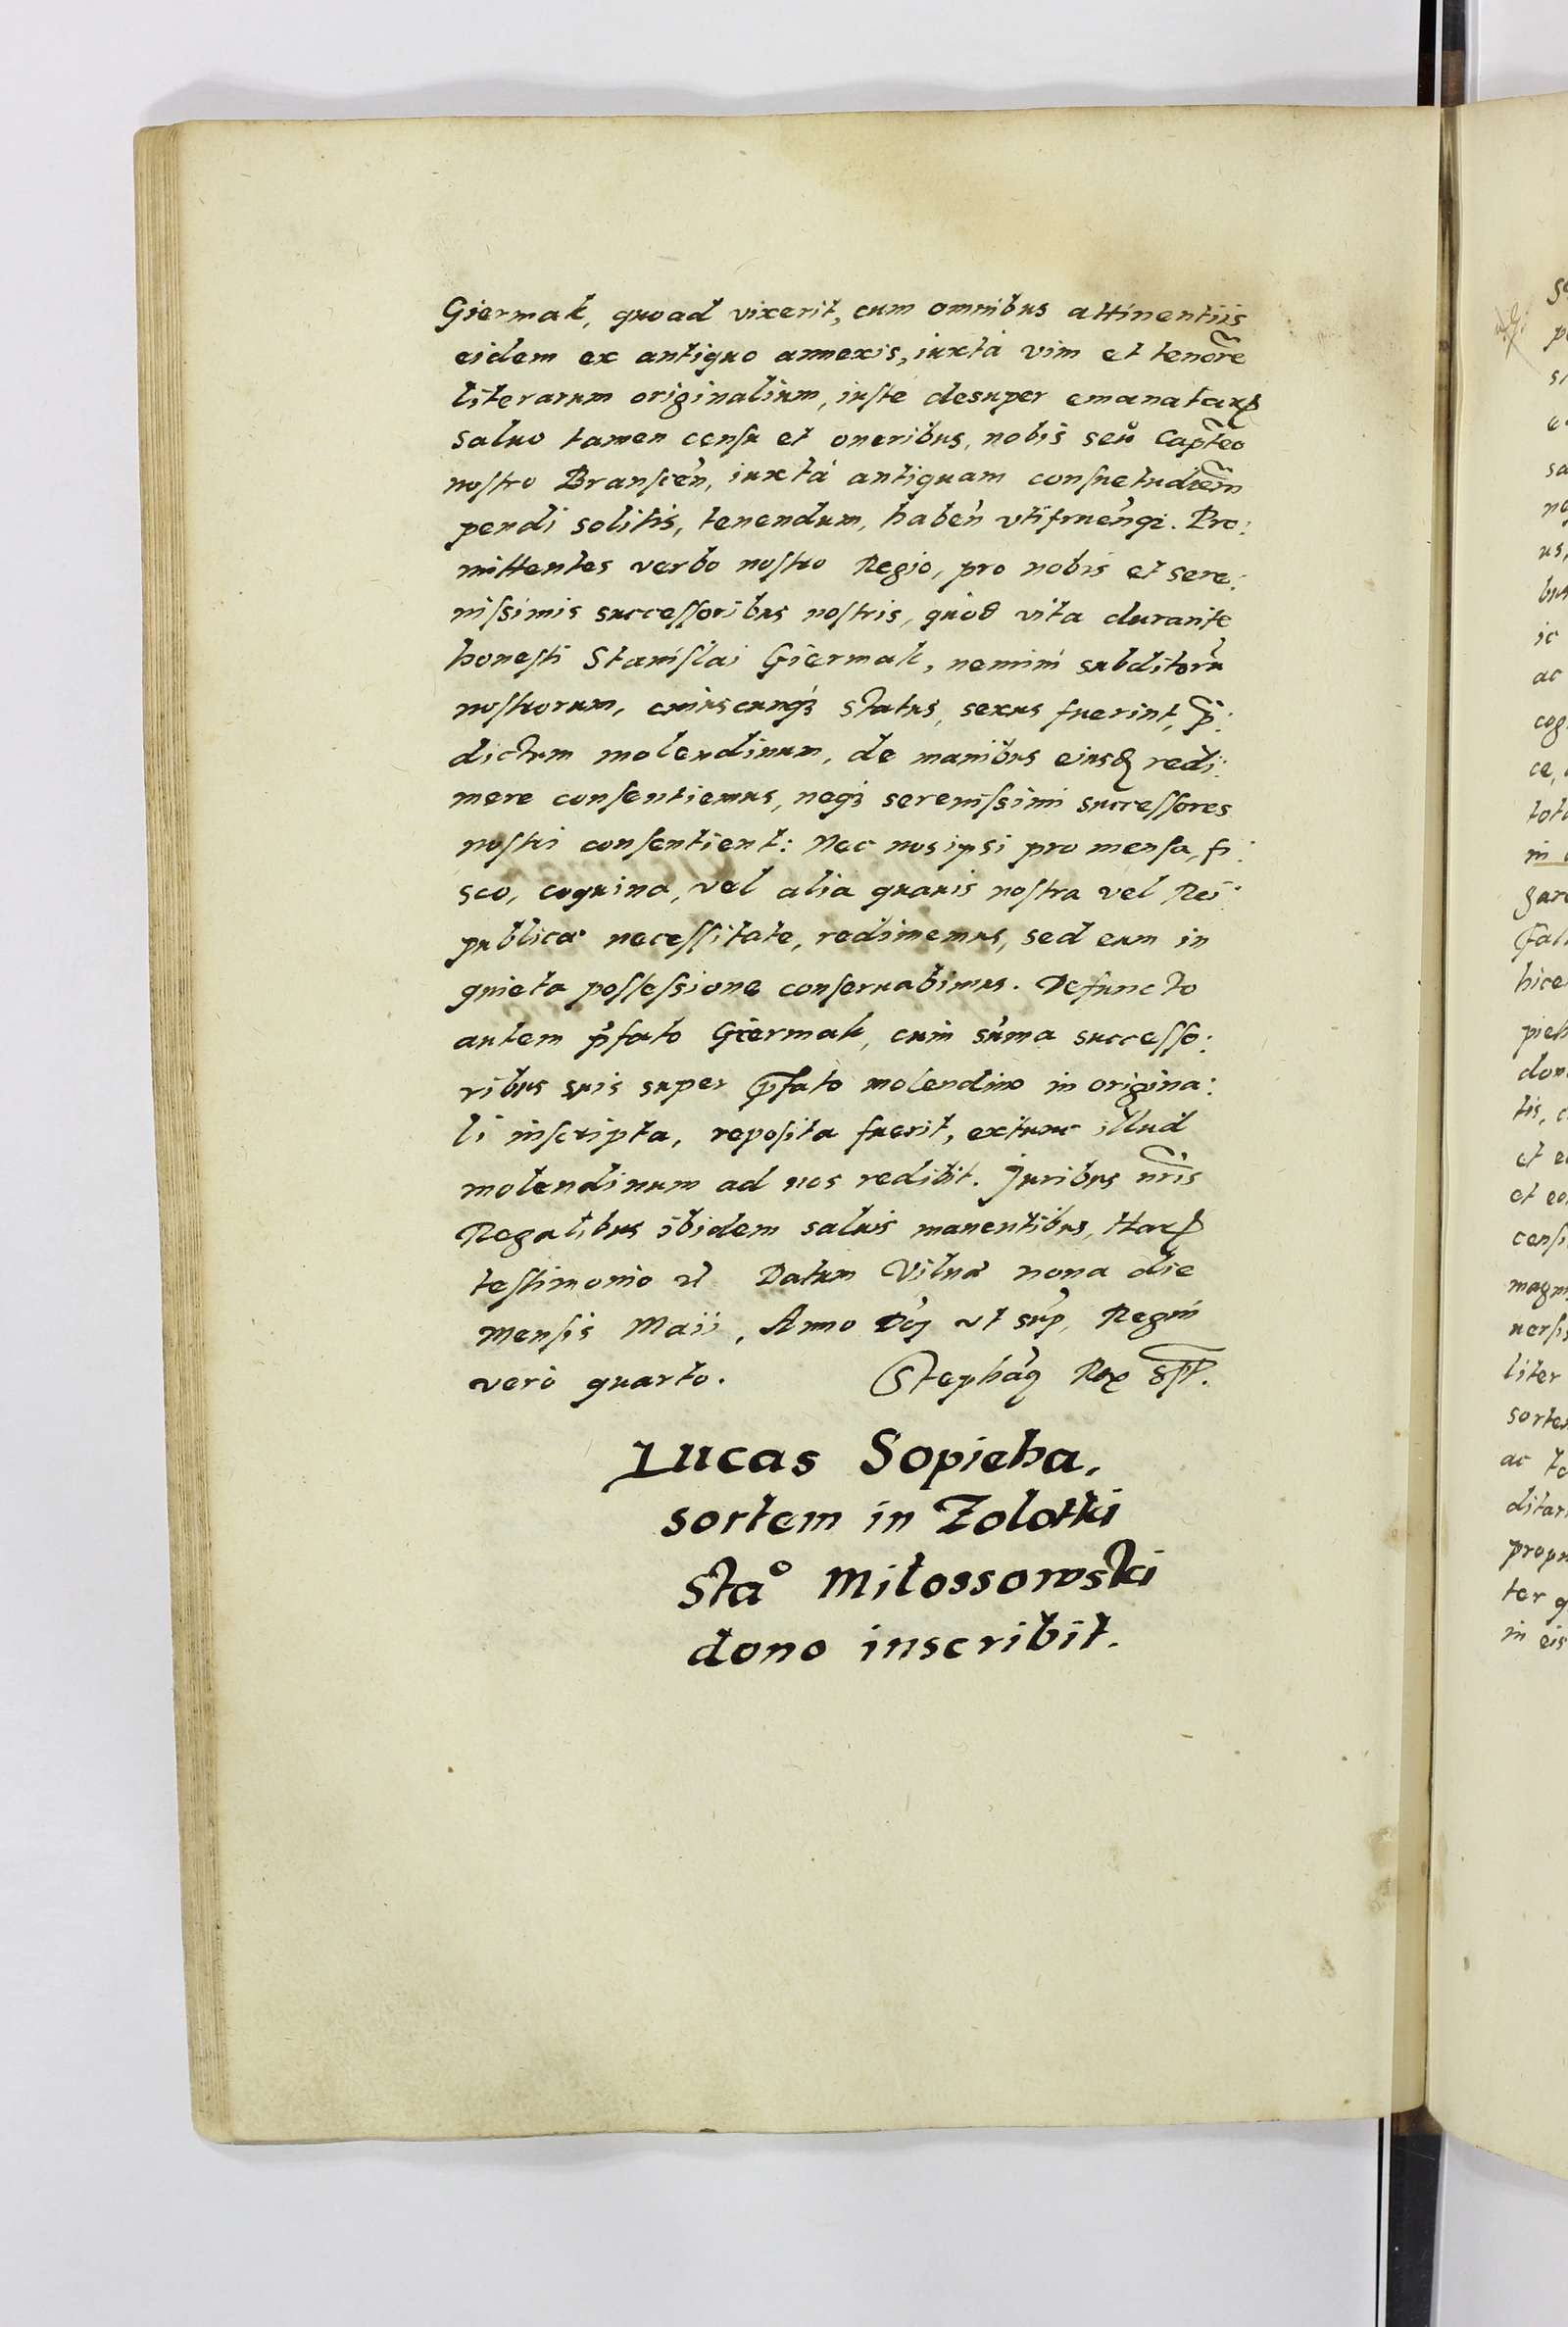 Giermak, quoad vixerit, cum omnibus attinentiis
eidem ex antiquo annexis, iuxtà vim et tenor̃e
literarum originalium, iuste desuper emanataꝝ
saluo tamen censu et oneribus, nobis seù Capt̃eo
nostro Branscen̓, iuxtà antiquam consuetudiem̃
pendi solitis, tenendum, haben̓ vtifruen̓qȝ. Pro:
mittentes verbo nostro Regio, pro nobis et sere:
nissimis successoribus nostris, quòd vita durante
honesti Stanislai Giermak, nemini subditorũ
nostrorum, cuiuscunqȝ status, sexus fuerint, p̃:
dictum molendinum, de manibus eiusd redi:
mere consentiemus, neqȝ serenissimi successores
nostri consentient: Nec nos ipsi pro mensa, fi:
sco, coquina, vel alia quauis nostra vel Rei:
publicæ necessitate, redimemus, sed eum in
quieta possessione conseruabimus. Defuncto
autem p̃fato Giermak, cum sum̓a successo:
ribus suis super p̃fato molendino in origina:
li inscripta, reposita fuerit, extunc illud
molendinum ad nos redibit. Juribus nr̃is
Regalibus ibidem saluis manentibus, Haꝝ
testimonio etc Datum Vilnæ nona die
mensis Maii, Anno Dn̓j vt sup̓, Regni
verò quarto. Stephan̓9 Rex sp̃t.
Lucas Sopieha,
sortem in Zolotki
Sta⁰ Milossowski
dono inscribit.